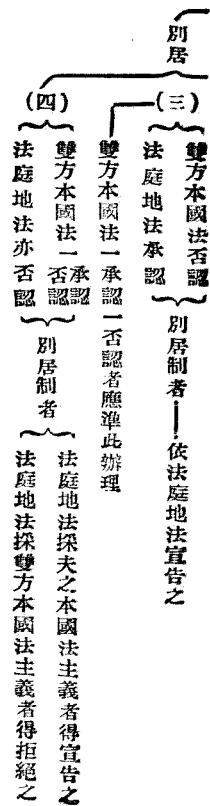 別居
(三)
雙方本國法否認
法庭地法承認
別居制者——依法庭地法宣告之
雙方本國法一承認一否認者應準此辦理
(四)
雙方本國法一承認
否認
法庭地法亦否認
別居制者
法庭地法採夫之本國法主義者得宣告之
法庭地法採雙方本國法主義者得拒絕之